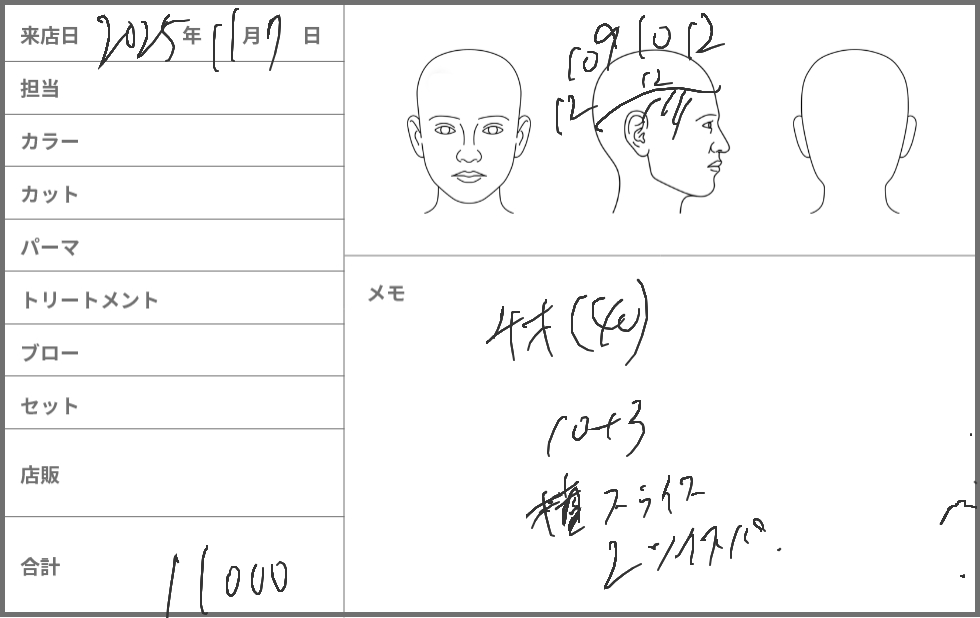 来店日 2025年 11月7日
担当
カラー
カット
パーマ
トリートメント
ブロー
セット
店販
合計 11000
109 10 12
12
12
メモ
(40)
10+3
スライス
ツイスパ.